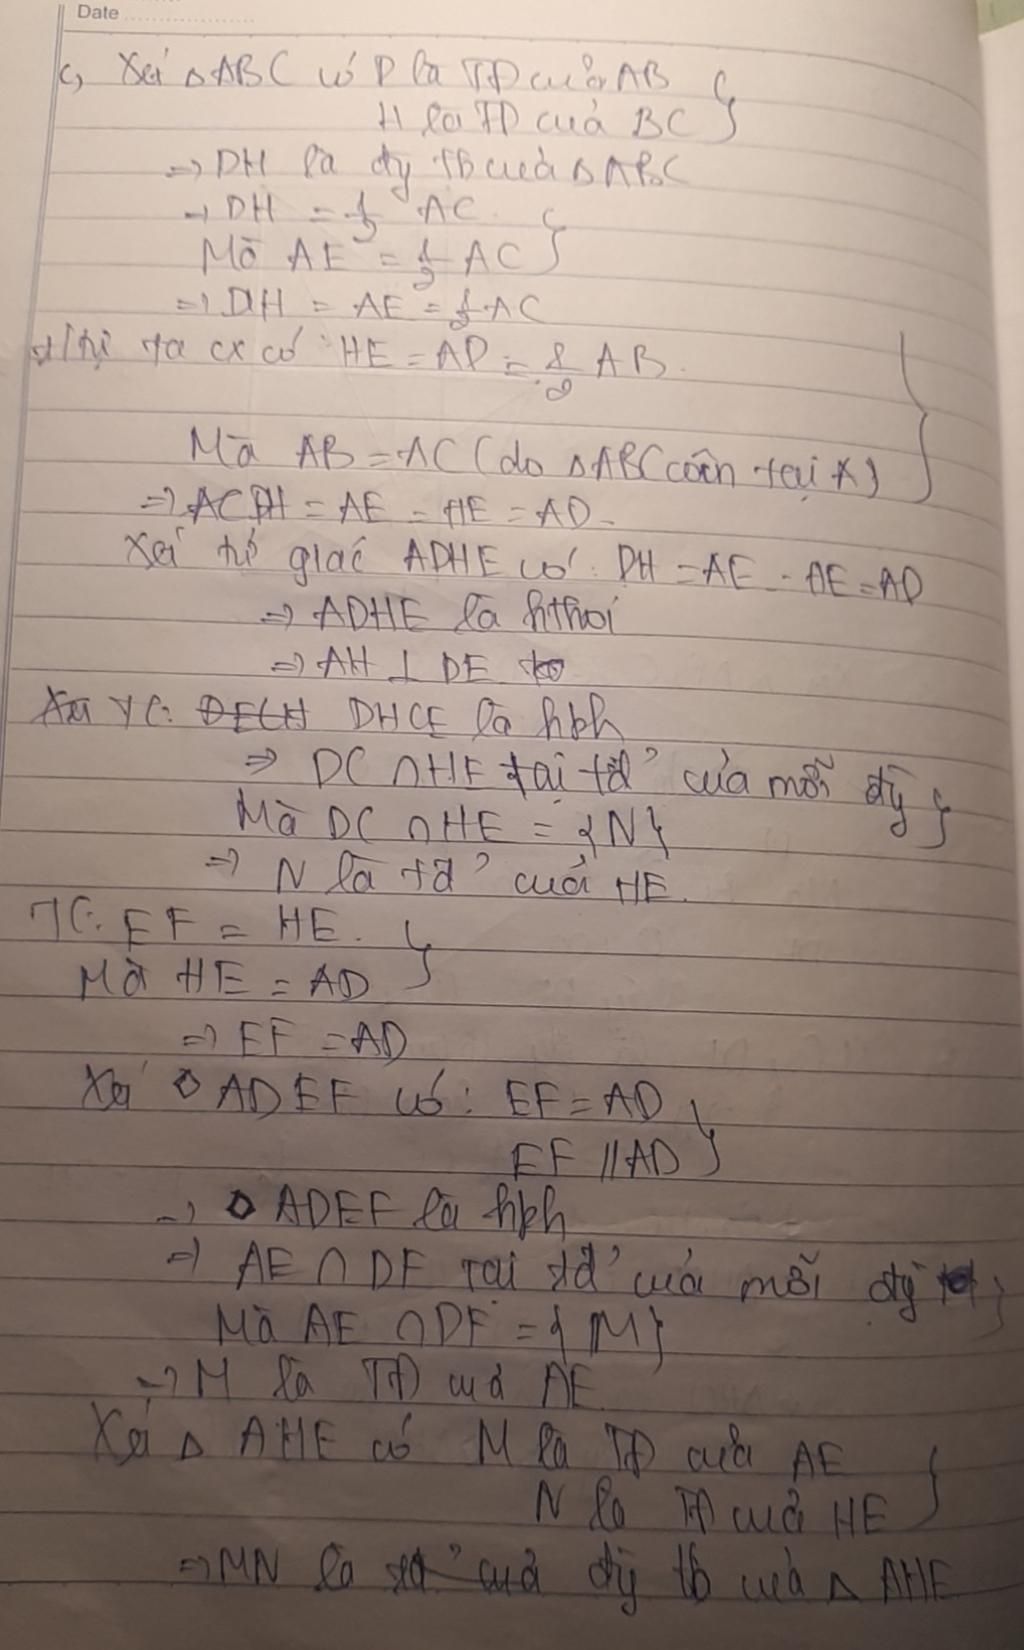 Date
c, Xét △ABC có D là TĐ của AB
H là TĐ của BC
⇒ DH là đg Tb của △ABC
→ DH = 1/2 AC
Mà AE = 1/2 AC
⇒ DH = AE = 1/2 AC
ta cx có : HE = AD = 1/2 AB.
Mà AB = AC (do △ABC cân tại A)
⇒ DH = AE = HE = AD.
Xét tứ giác ADHE có : DH = AE = HE = AD
⇒ ADHE là hthoi
⇒ AH ⊥ DE
DHCE là hbh
⇒ DC ∩ HE tại tđ' của mỗi đg
Mà DC ∩ HE = {N}
⇒ N là tđ' của HE.
TC: EF = HE.
Mà HE = AD
⇒ EF = AD
Xét ◇ ADEF có : EF = AD
EF // AD
→ ◇ ADEF là hbh
⇒ AE ∩ DF tại tđ' của mỗi đg
Mà AE ∩ DF = { M }
⇒ M là TĐ của AE.
Xét △ AHE có M là TĐ của AE
N là TĐ của HE
⇒ MN là đg tb của △ AHE